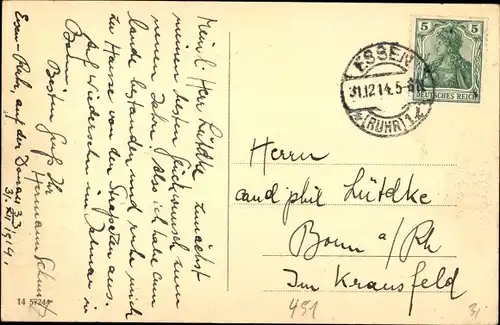 Mein l. Herr Lüdtke zunächst
meinen besten Glückwunsch zum
neuen Jahr! Also ich habe am
bestanden und ruhe mich
zu Hause von den Strapazen aus.
Auf Wiedersehen im Januar in
Bonn
Besten Gruß Ihr
Hermann
Essen-Ruhr, auf der Donau 33
31. XII 1914.
14 57244
5 5
DEUTSCHES REICH
ESSEN
31.12.14.5-6
(RUHR) 1
Herrn
cand phil Lütdke
Bonn a/Rh
Im Krausfeld
451